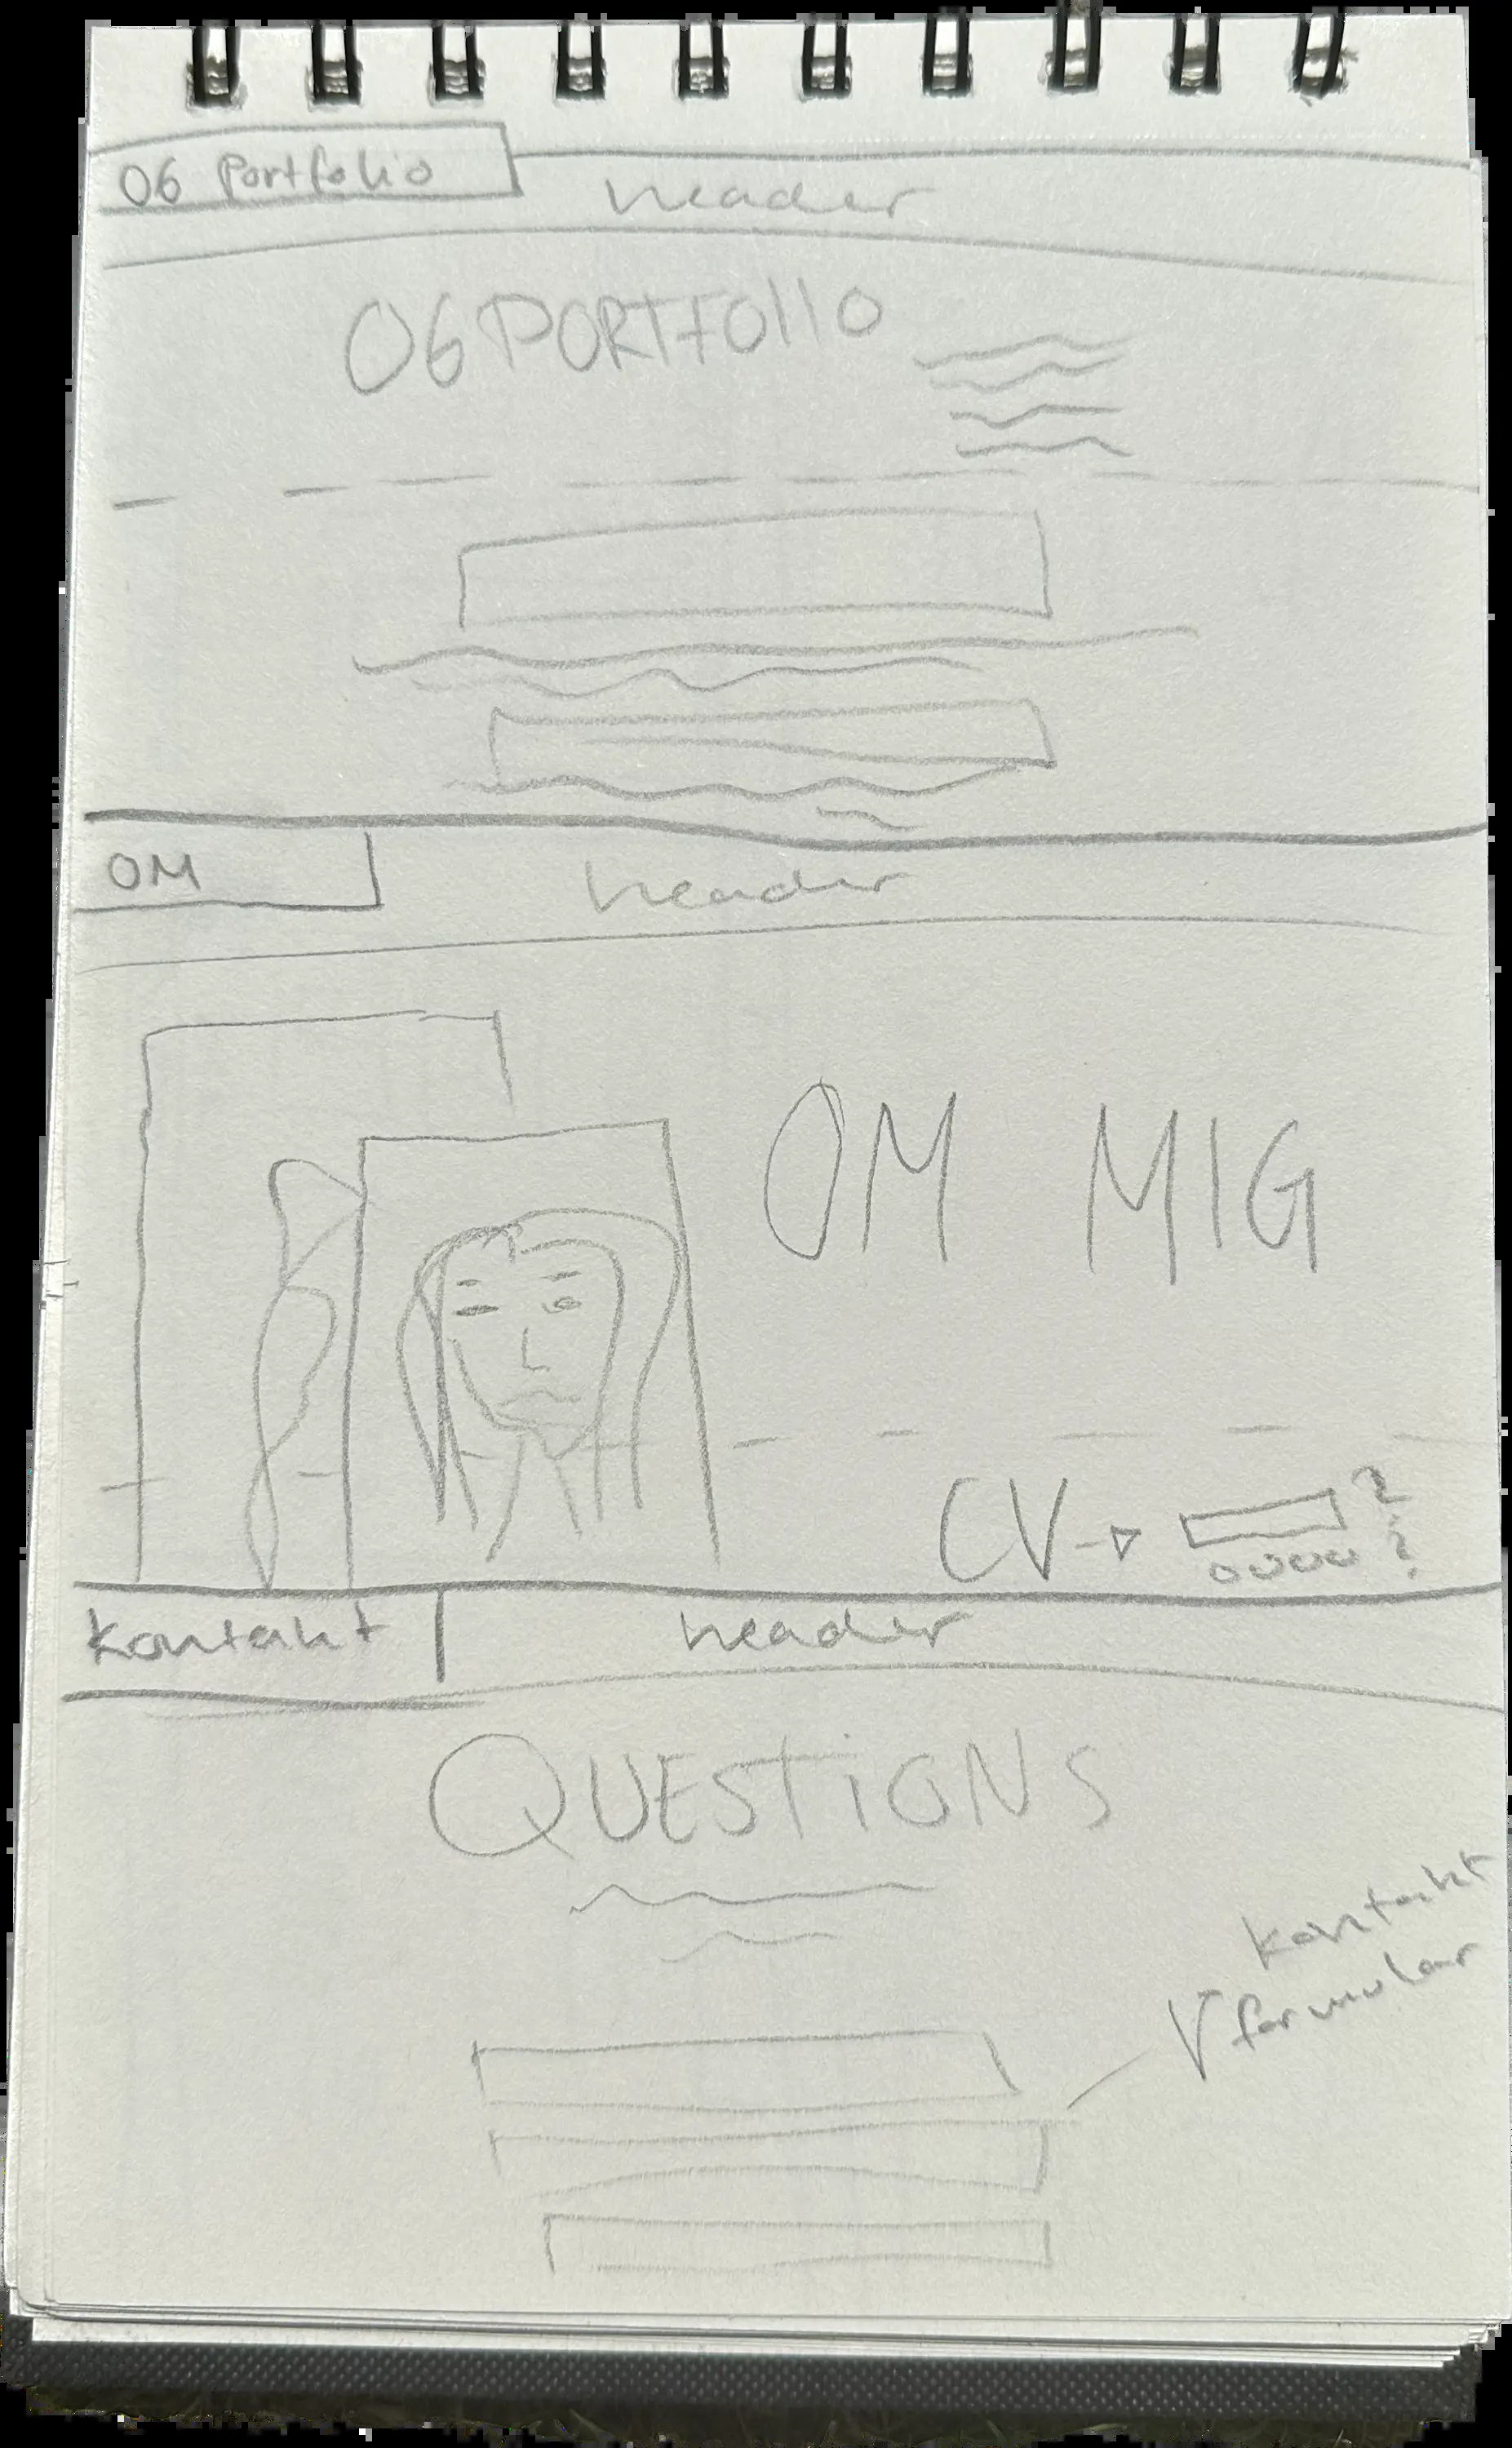 06 Portfolio
header
06 PORTFOLIO
OM
header
OM MIG
CV
?
?
kontakt
header
QUESTIONS
kontakt
formular